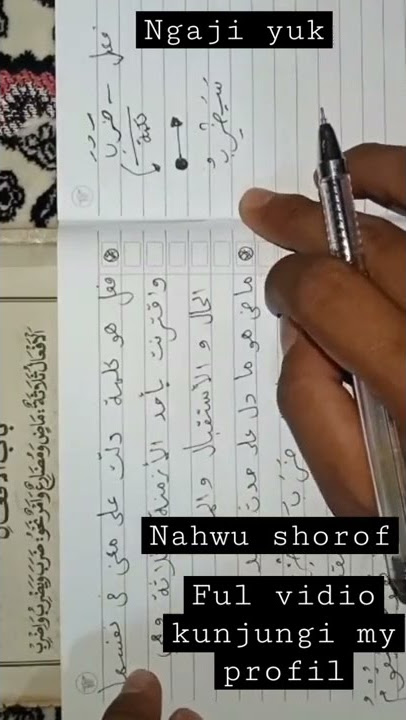 Ngaji yuk
فعل – ضَرَبَ
كلمة
سَيَضْرِبُ
فعل هو كلمة دلت على معنى فى نفسها
واقترنت بأحد الأزمنة
الحال و الاستقبال
ماضى هو ما دل على حدث
باب الأفعال
اَلْأَفْعَالُ ثَلَاثَةٌ: مَاضٍ وَمُضَارِعٌ وَأَمْرٌ نَحْوُ: ضَرَبَ وَيَضْرِبُ وَاضْرِبْ
Nahwu shorof
Ful vidio
kunjungi my
profil